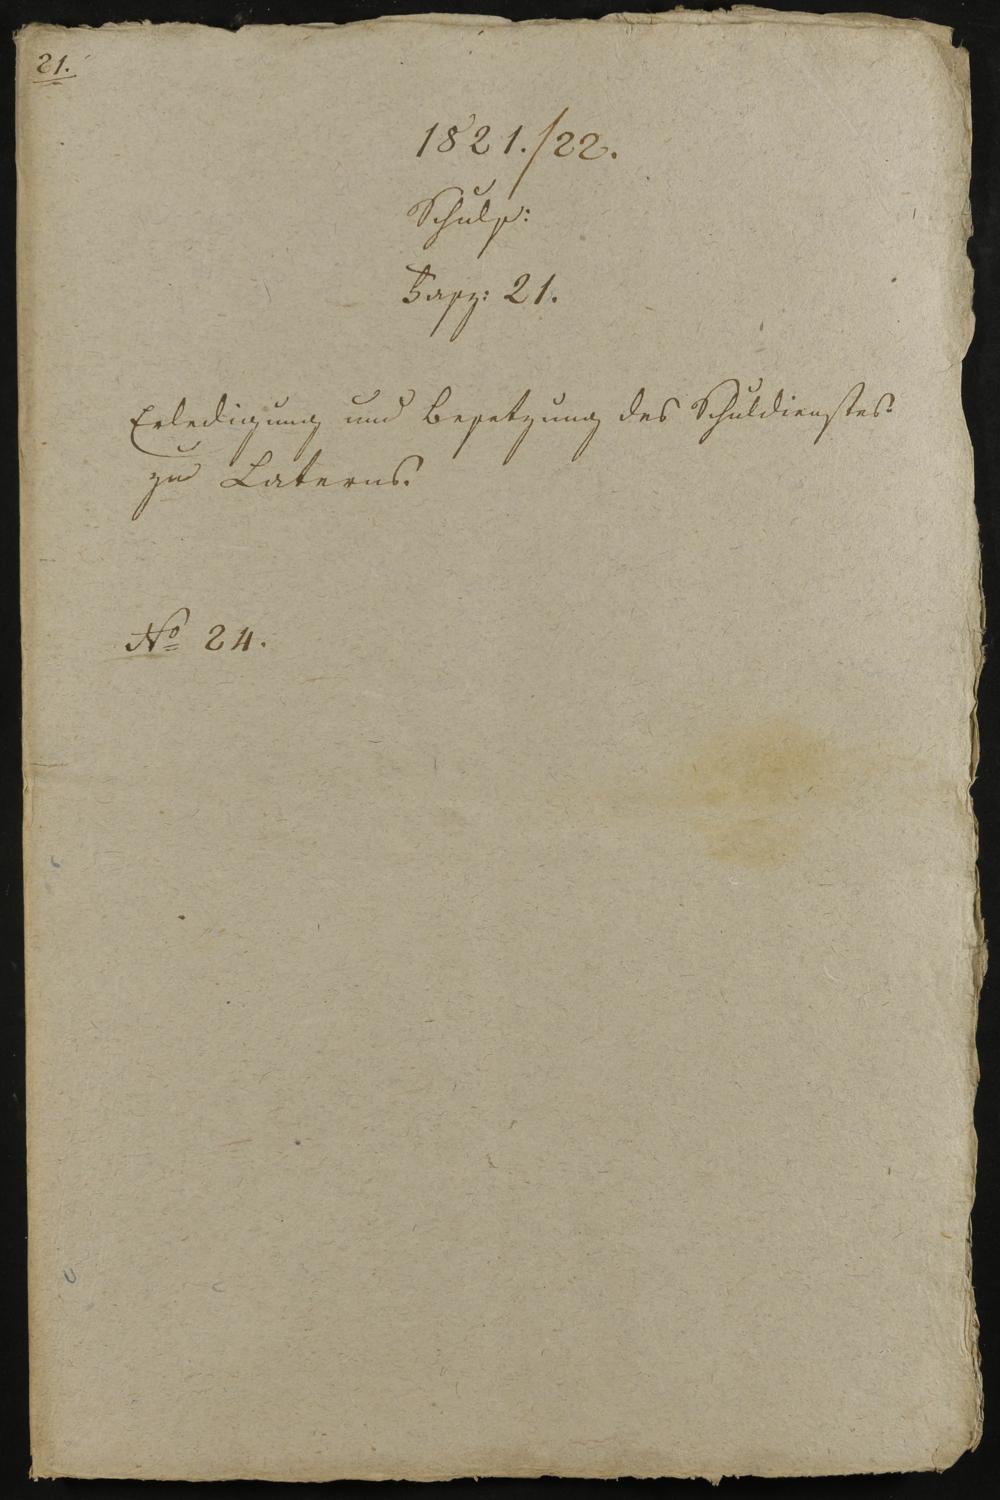 21.
1821./22.
Schuls:
Fasz: 21.
Erledigung und Besetzung des Schuldienstes
zu Laterns.
No 24.